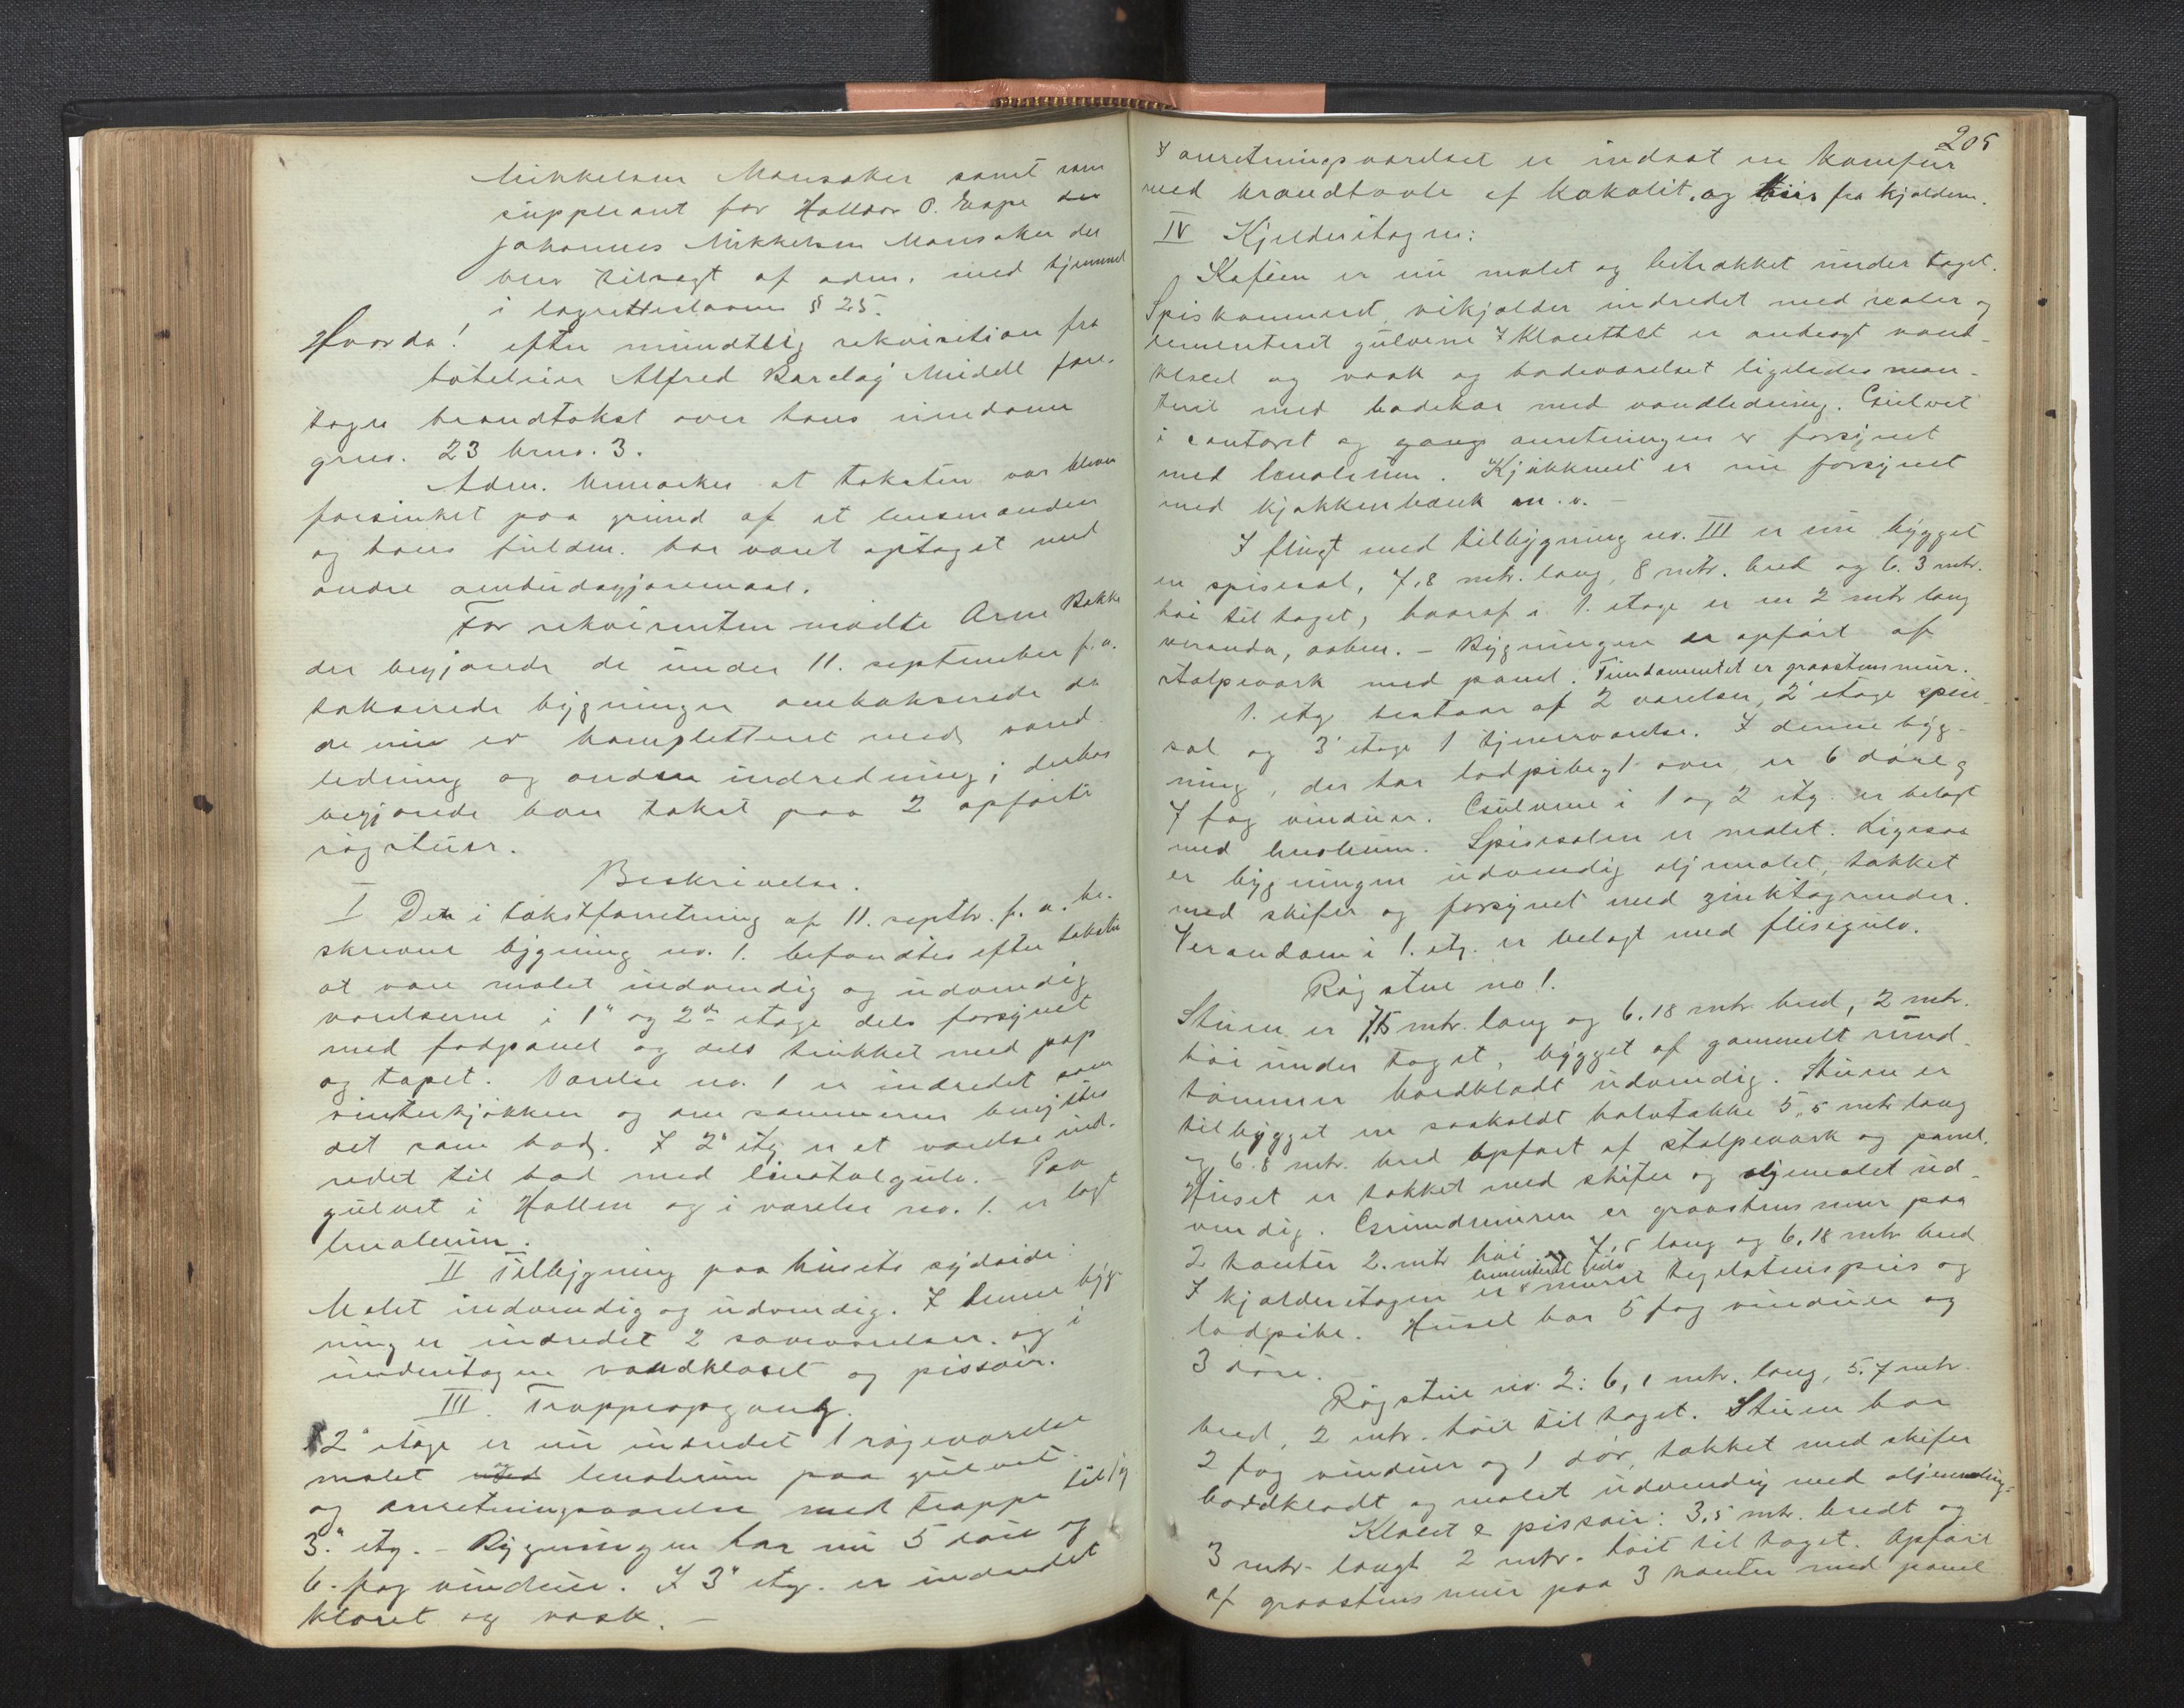 Mikkelsen Mansaker samt som
suppleant for Halldor O. Espe den
Johannes Mikkelsen Mansaker der
blev tilsagt af adm. med hjemmel
i lagretteslovens § 25.
Hvorda! efter mundtlig rekvisition fra
hoteleier Alfred Barclay Midell fore-
toges brandtakst over hans eiendom
gno. 23 brno. 3.
Adm. bemærker at taksten var bleven
forsinket paa grund af at lensmanden
og hans fuldm. har været optaget med
andre ombudsgjøremaal.
For rekvirenten mødte Arne Bakke
der begjærede de under 11. september f. a.
takserede bygninger omtakserede da
de nu er kompletteret med vand-
ledning og anden indredning; derhos
begjærede han takst paa 2 opførte
røgstuer.
Beskrivelse.
I Den i takstforretning af 11. septbr. f. a. be-
skrevne bygning no. 1. befandtes efter taksten
at være malet indvendig og udvendig
værelserne i 1ste og 2den etage dels forsynet
med fodpanel og dels trukket med pap
og tapet. Værelse no. 1 er indredet som
vinterkjøkken og om sommeren benyttes
det som bad. I 2' etg er et værelse ind-
redet til bad med linotolgulv. - Paa
gulvet i Hallen og i værelse no. 1. er lagt
linoleum.
II Tilbygning paa husets sydside:
Malet indvendig og udvendig. I denne byg-
ning er indredet 2 soveværelser. og i
underetagen vandkloset og pissoir.
III. Trappeopgang.
2' etage er nu indredet 1 røgeværelse
malet med linoleum paa gulvet.
og anretningsværelse med trappe til
3' etg. - Bygningen har nu 5 døre og
6. fag vinduer. I 3' etg. er indredet
kloset og vask. -
205
I anretningsværelset er indsat en komfur
med brandtavle af kakalit. og heis fra kjælderen.
IV Kjælderetagen:
Kafeen er nu malet og betrækket under taget.
Spiskammeret, vikjælder indredet med reoler og
cementeret gulvene I Klosettet er anbragt vand-
kloset og vask og badeværelset ligeledes mon-
teret med badekar med vandledning. Gulvet
i contoret og gang anretningen er forsynet
med linoleum. Kjøkkenet er nu forsynet
med kjøkkenbænk m. v. -
I flugt med tilbygning no. III er nu bygget
en spisesal, 7,8 mtr. lang, 8 mtr. bred og 6.3 mtr.
høi til taget, hvoraf i 1. etage er en 2 mtr lang
veranda, aaben. - Bygningen er opført af
stolpeværk med panel. Fundamentet er graastensmur.
1. etg bestaar af 2 værelser, 2' etage spise-
sal og 3' etage 1 tjenerværelse. I denne byg-
ning, der har lodpibe, 1 ovn, er 6 døre og
7 fag vinduer. Gulvene i 1 og 2 etg. er belagt
med linoleum. Spisesalen er malet. Ligesaa
er bygningen udvendig oljemalet, tækket
med skifer og forsynet med zinktagrender.
Verandaen i 1. etg. er belagt med flisegulv.
Røgstue no 1.
Stuen er 7,5 mtr. lang og 6.18 mtr bred, 2 mtr.
høi under taget, bygget af gammelt rund-
tømmer bordklædt udvendig. Stuen er
tilbygget en saakaldt halvtække 5,5 mtr lang
og 6.8 mtr. bred opført af stolpeværk og panel.
Huset er tækket med skifer og oljemalet ud-
vendig. Grundmuren er graastensmur paa
2 kanter 2. mtr høi og 7,5 lang og 6,18 mtr bred
cementeret gulv
I kjælderetagen er muret teglstenspeis og
lodpibe. Huset har 5 fag vinduer og
3 døre.
Røgstue no. 2: 6,1 mtr. lang, 5.7 mtr.
bred, 2 mtr. høit til taget. Stuen har
2 fag vinduer og 1 dør, tækket med skifer
bordklædt og malet udvendig med oljemaling.
Kloset & pissoir: 3,5 mtr. bredt og
3 mtr. langt 2 mtr. høit til taget. Opført
af graastensmur paa 3 kanter med panel